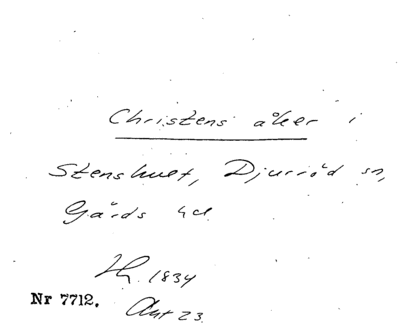 Christens åker i
Stenshult, Djurröd sn,
Gärds hd
1834
Nr 7712.
Akt 23.